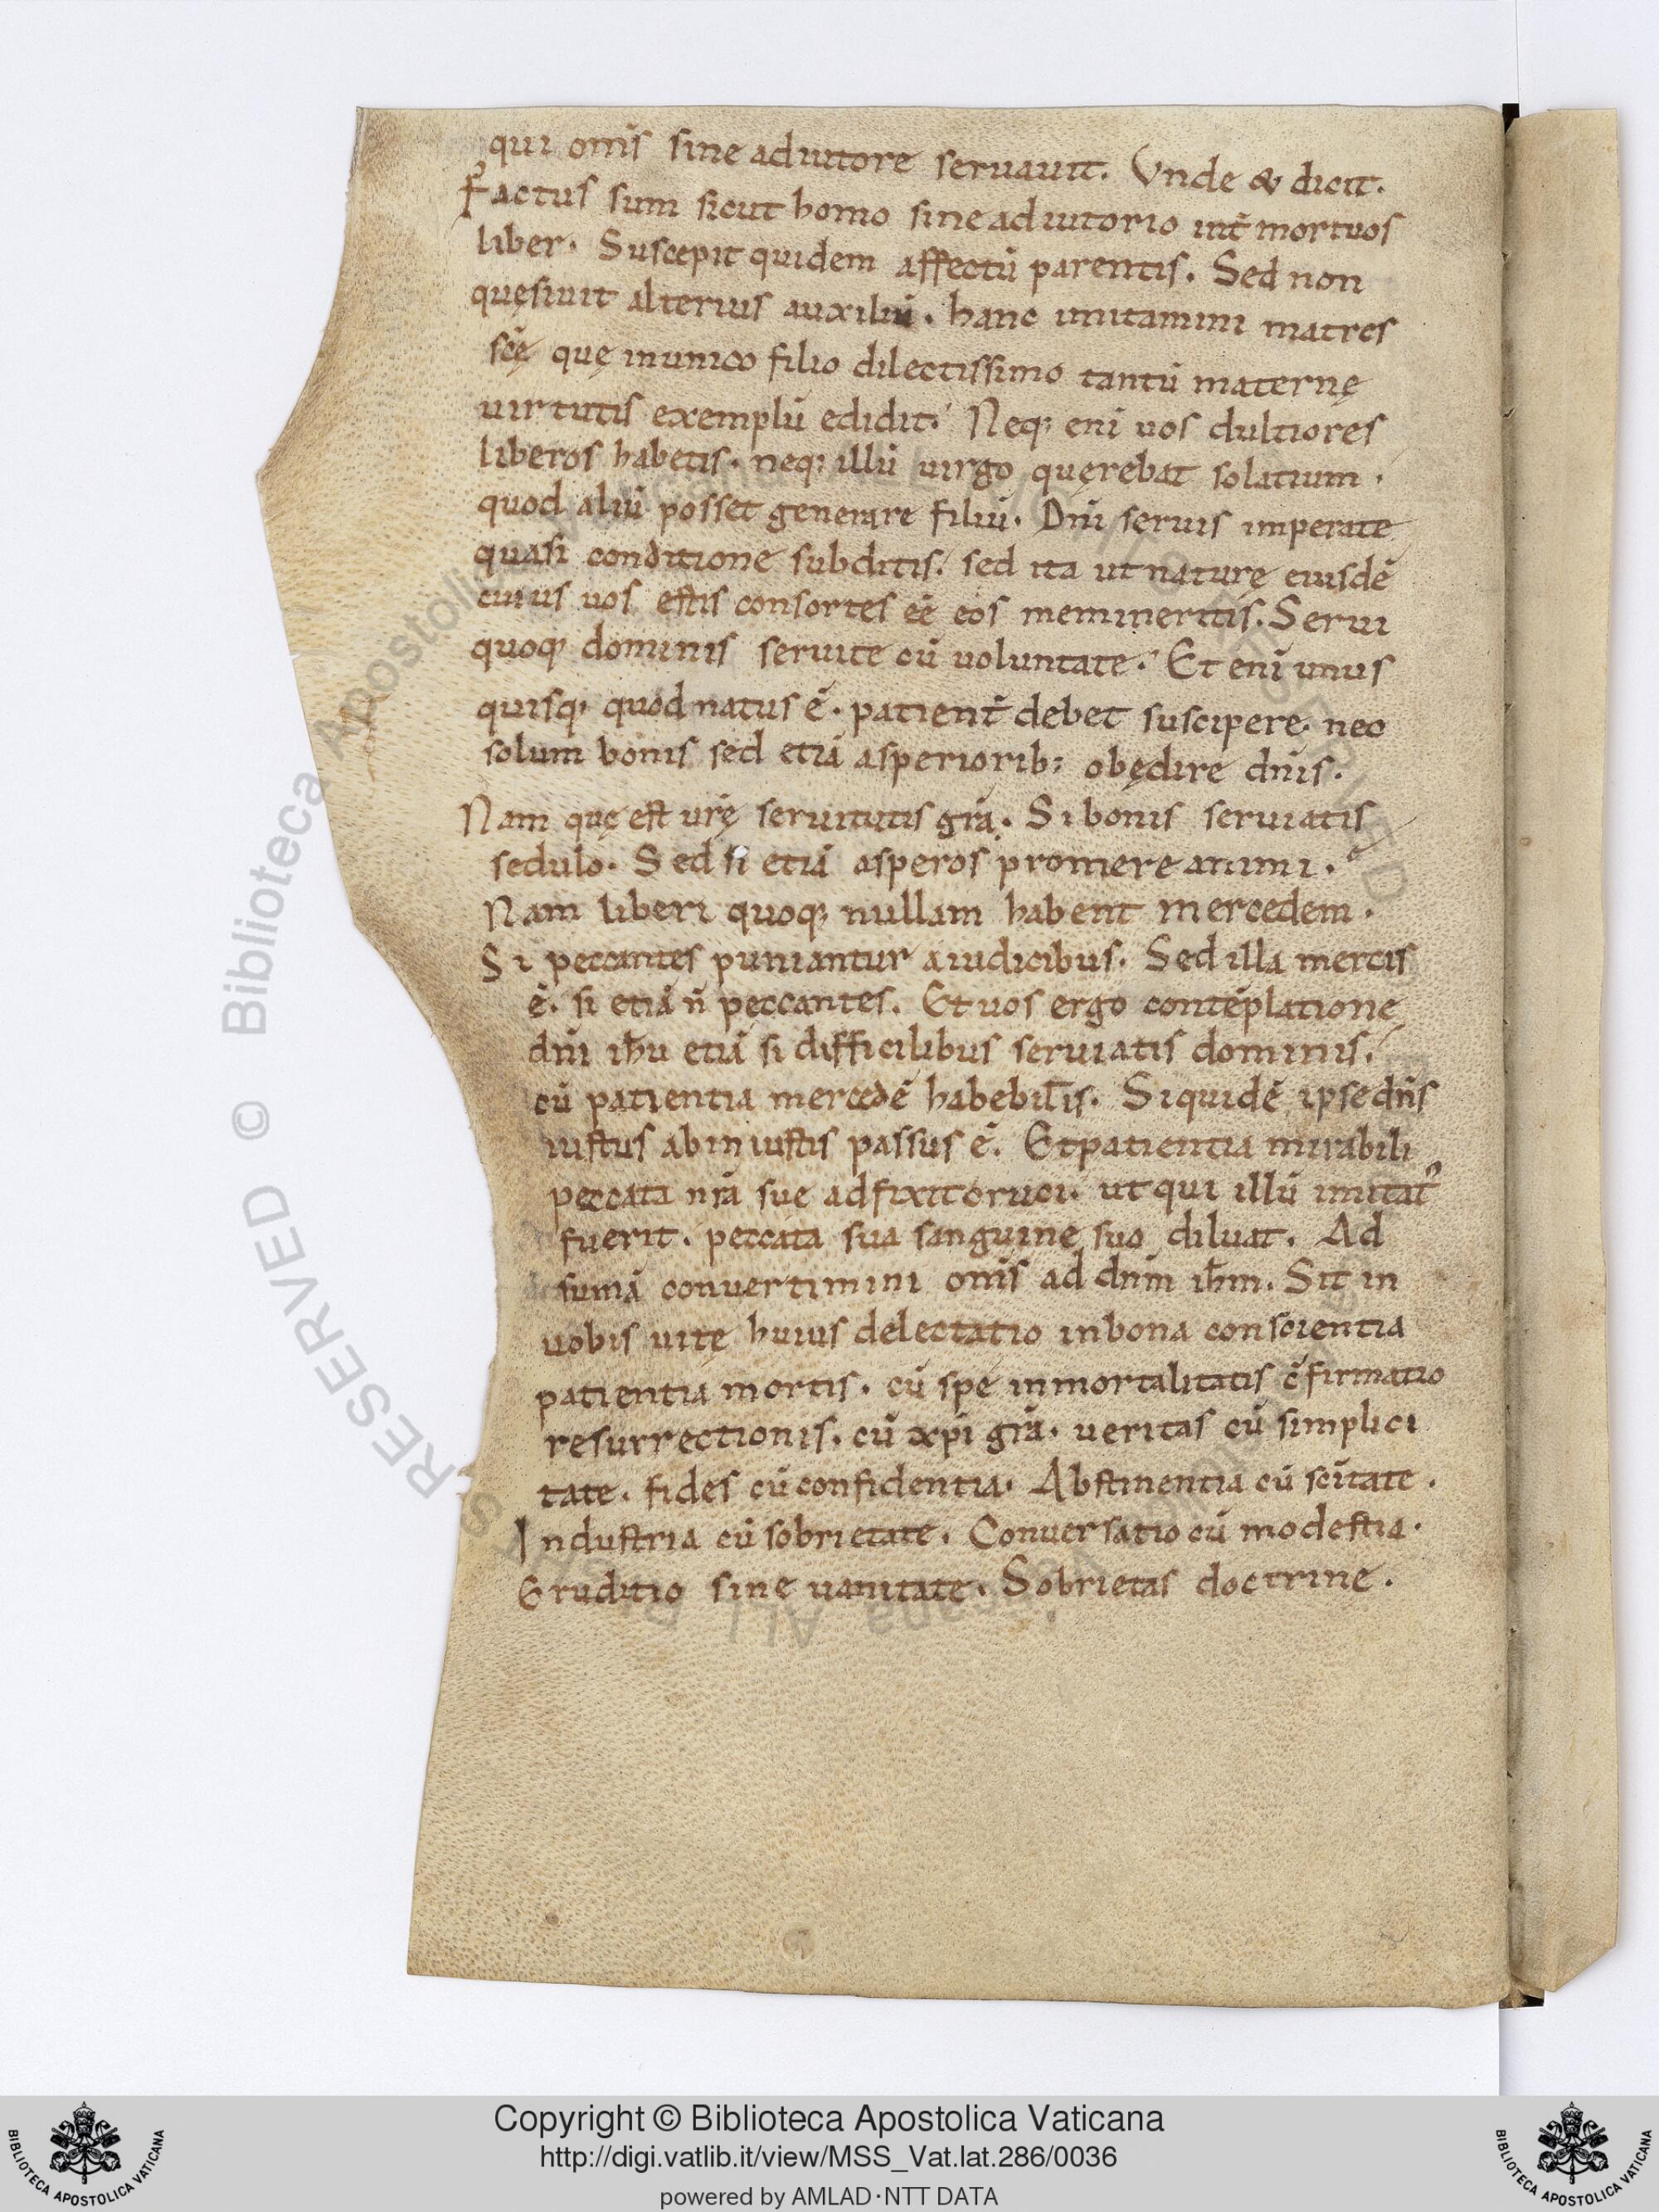 qui om̅s sine adiutore seruauit. Vnde & dicit.
Factus sum sicut homo sine adiutorio int̅ mortuos
liber. Suscepit quidem affectu̅ parentis. Sed non
quęsiuit alterius auxiliu̅. hanc imitamini matres
sc̅ę quę inunico filio dilectissimo tantu̅ maternę
uirtutis exemplu̅ edidit. Neq; eni̅ uos dultiores
liberos habetis. neq; illu̅ uirgo quęrebat solatium.
quod aliu̅ posset generare filiu̅. Dn̅i seruis imperate
quasi conditione subditis. sed ita ut naturę eiusde̅
cuius uos estis consortes e̅e̅ eos memineritis. Serui
quoq; dominis seruite cu̅ uoluntate. Et eni̅ unus
quisq; quod natus e̅. patient̅ debet suscipere. nec
solum bonis sed etia̅ asperiorib; obędire dn̅is.
Nam quę est ur̅ę seruitutis gr̅a. Si bonis seruiatis
sedulo. Sed si etia̅ asperos promereamini.
Nam liberi quoq; nullam habent mercedem.
Si peccantes puniantur aiudicibus. Sed illa mercis
e̅. si etia̅ n̅ peccantes. Et uos ergo conte̅platione
dn̅i ih̅u etia̅ si difficilibus seruiatis dominis.
cu̅ patientia mercede̅ habebitis. Siquide̅ ipse dn̅s
iustus ab iniustis passus e̅. Et patientia mirabili
peccata nr̅a sue adfixit cruci. ut qui illu̅ imitat᾽
fuerit. peccata sua sanguine suo diluat. Ad
suma̅ conuertimini om̅s ad dn̅m ih̅m. Sit in
uobis uitę huius delectatio inbona conscientia
patientia mortis. cu̅ spe inmortalitatis c̅firmatio
resurrectionis. cu̅ xp̅i gr̅a. ueritas cu̅ simplici
tate. fides cu̅ confidentia. Abstinentia cu̅ sc̅itate.
Industria cu̅ sobrietate. Conuersatio cu̅ modestia.
Eruditio sine uanitate. Sobrietas doctrine.
© Biblioteca Apostolica Vaticana ALL RIGHTS RESERVED
Copyright © Biblioteca Apostolica Vaticana
http://digi.vatlib.it/view/MSS_Vat.lat.286/0036
powered by AMLAD·NTT DATA
BIBLIOTECA APOSTOLICA VATICANA
BIBLIOTECA APOSTOLICA VATICANA